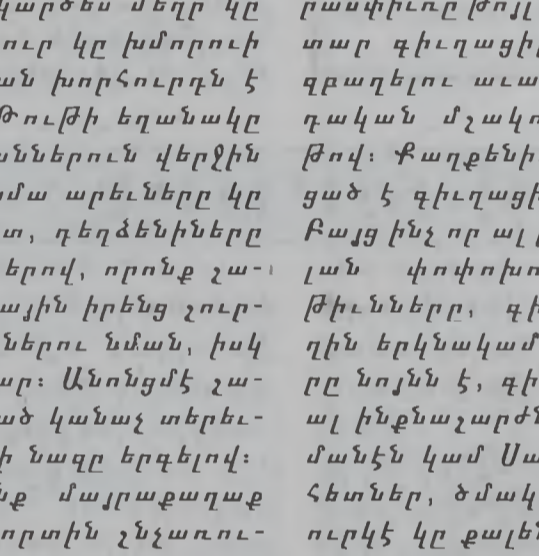 կարծես մեղր կը
ուր կը խմորուի
ան խորհուրդն է
թութի եղանակը
ններուն վերջին
մա արեւները կը
տ, դեղձենիները
երով, որոնք շա-
ային իրենց շուր-
ներու նման, իսկ
ար։ Անոնցմէ շա-
ած կանաչ տերեւ-
ի նազը երգելով։
նք մայրաքաղաք
որտին շնչառու-
րասփիւռը թոյլ
տար գիւղացի
զբաղելու աւա
դական մշակ
թով։ Քաղքենի
ցած է գիւղացի
Բայց ինչ որ ալ
լան փոփոխո
թիւնները, գի
ղին երկնակամ
րը նոյնն է, գի
ալ ինքնաշարժն
մանէն կամ Սա
հետներ, ծմակ
ուրկէ կը քալեն